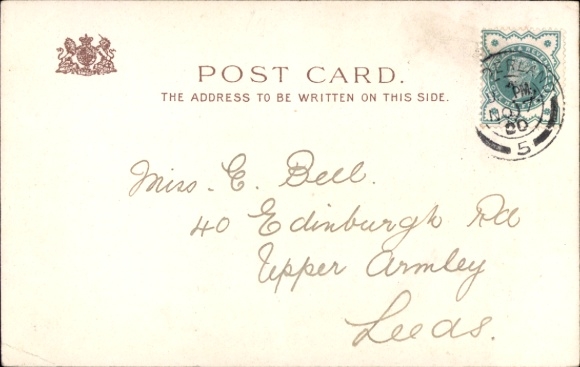 POST CARD.
THE ADDRESS TO BE WRITTEN ON THIS SIDE.
PM
NO
00
5
Miss. E. Bell.
40 Edinburgh Rd
Upper Armley
Leeds.